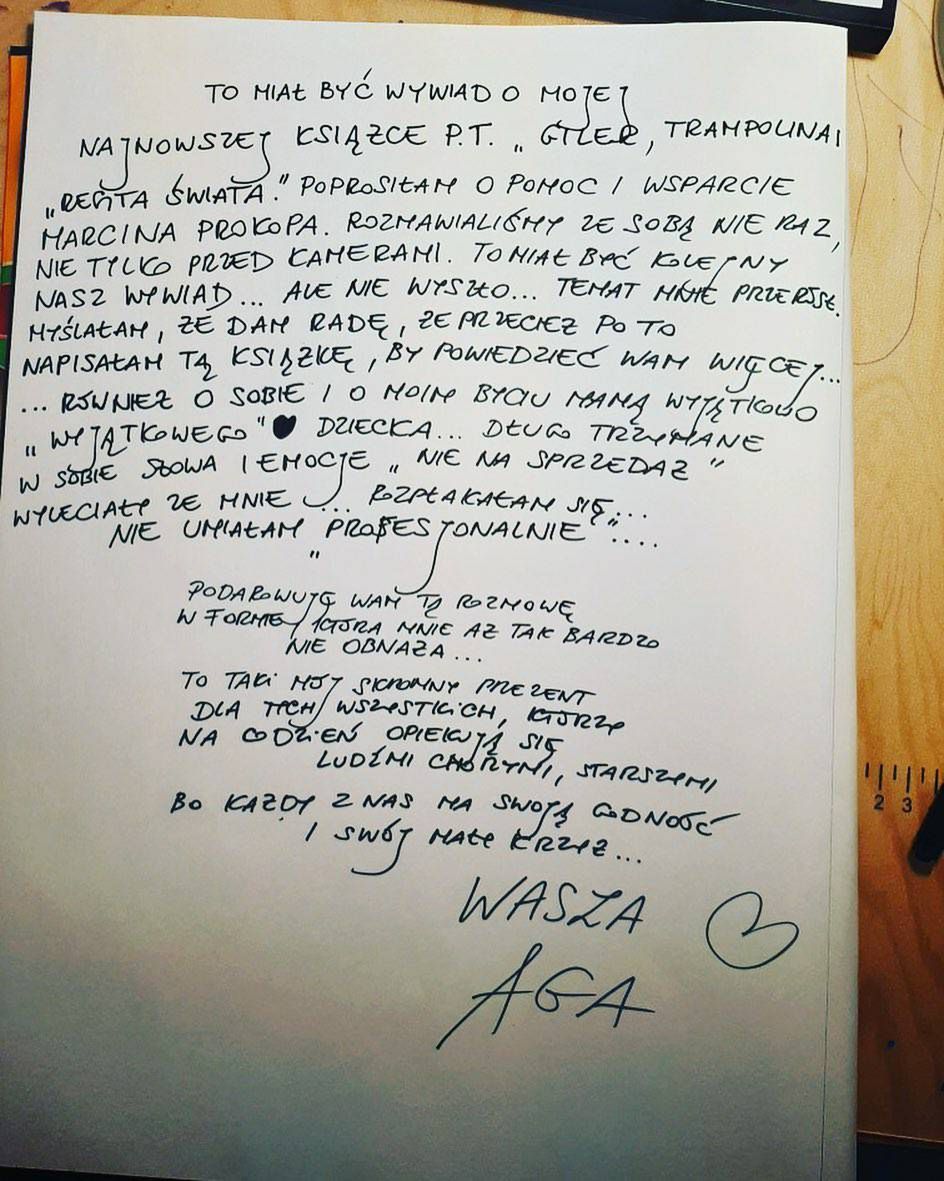 TO MIAŁ BYĆ WYWIAD O MOJEJ
NAJNOWSZEJ KSIĄŻCE P.T. „GTLER, TRAMPOLINA I
„RESZTA ŚWIATA." POPROSIŁAM O POMOC I WSPARCIE
MARCINA PROKOPA. ROZMAWIALIŚMY ZE SOBĄ NIE RAZ,
NIE TYLKO PRZED KAMERAMI. TO MIAŁ BYĆ KOLEJNY
NASZ WYWIAD... ALE NIE WYSZŁO... TEMAT MNIE PRZERÓSŁ.
MYŚLAŁAM, ŻE DAM RADĘ, ŻE PRZECIEŻ PO TO
NAPISAŁAM TĄ KSIĄŻKĘ, BY POWIEDZIEĆ WAM WIĘCEJ...
... RÓWNIEŻ O SOBIE I O MOIM BYCIU MAMĄ WYJĄTKOWO
„WYJĄTKOWEGO" ♥ DZIECKA... DŁUGO TRZYMANE
W SOBIE SŁOWA I EMOCJE „NIE NA SPRZEDAŻ"
WYLECIAŁY ZE MNIE ... ROZPŁAKAŁAM SIĘ...
NIE UMIAŁAM „PROFESJONALNIE"....
PODAROWUJĘ WAM TĄ ROZMOWĘ
W FORMIE, KTÓRA MNIE AŻ TAK BARDZO
NIE OBNAŻA...
TO TAKI MÓJ SKROMNY PREZENT
DLA TYCH WSZYSTKICH, KTÓRZY
NA CODZIEŃ OPIEKUJĄ SIĘ
LUDŹMI CHORYMI, STARSZYMI
BO KAŻDY Z NAS MA SWOJĄ GODNOŚĆ
I SWÓJ MAŁY KRZYŻ...
WASZA
AGA
2 3